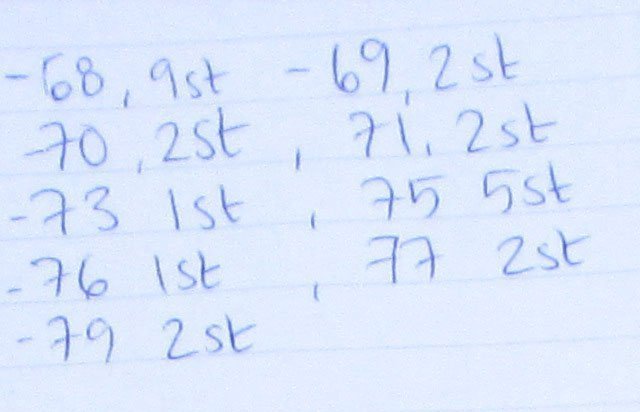 -68, 9st -69, 2st
-70, 2st, 71, 2st
-73 1st, 75 5st
-76 1st, 77 2st
-79 2st